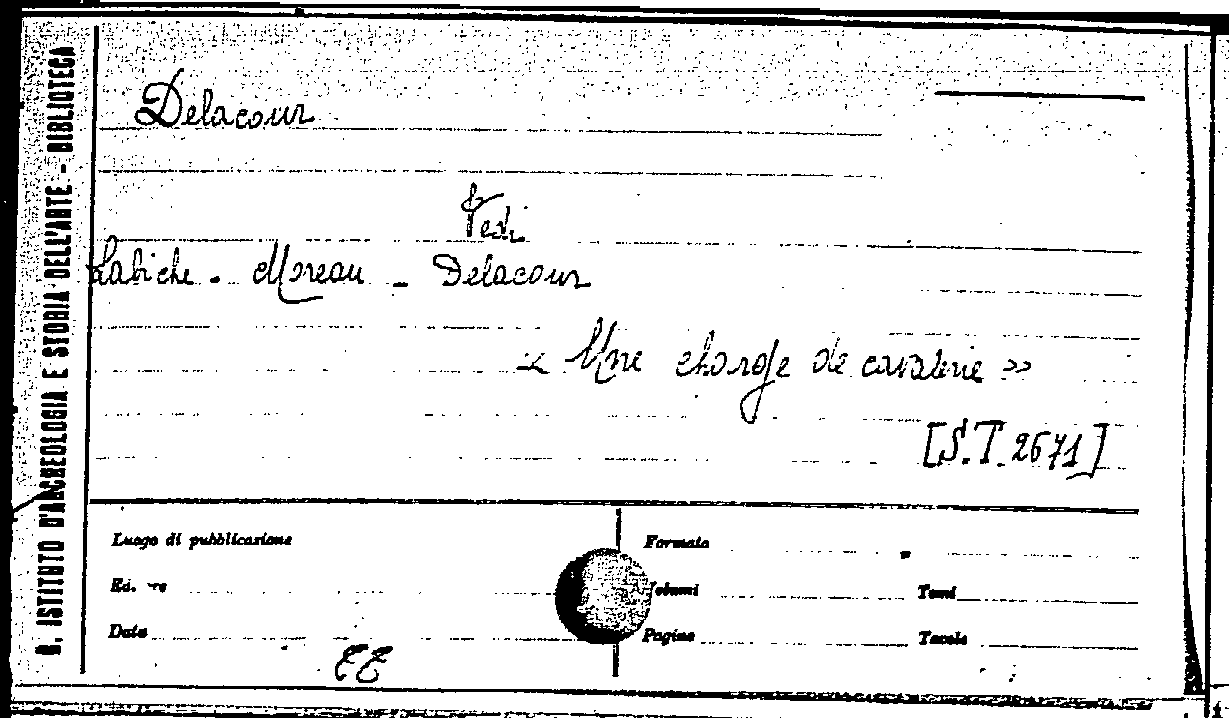 R. ISTITUTO D'ARCHEOLOGIA E STORIA DELL'ARTE - BIBLIOTECA
Delacour
Vedi
Labiche - Moreau - Delacour
« Une charge de cavalerie »
[S.T. 2671]
Luogo di pubblicazione
Formato
Volumi
Tomi
Data
Pagine
Tavole
EE